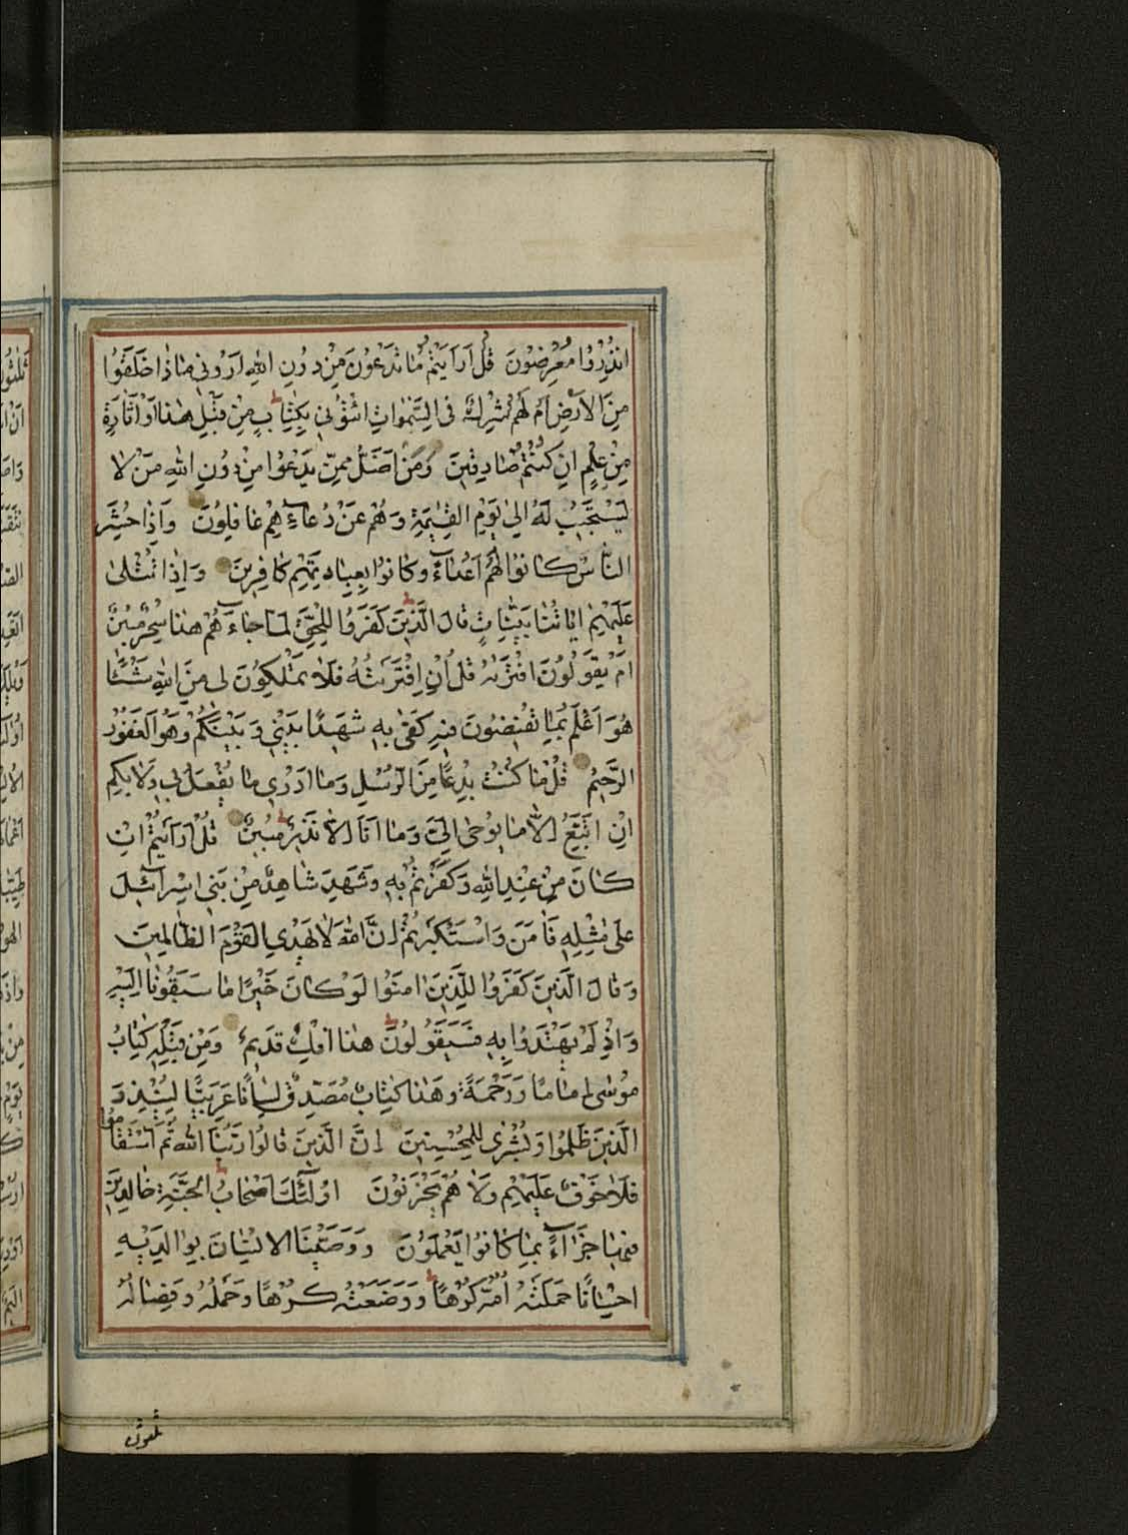 انذروا معرضون قل ارايتم ما تدعون من دون الله ارونى ماذا خلقوا
من الارض ام لهم شرك فى السموات ائتونى بكتاب من قبل هذا او اثارة
من علم ان كنتم صادقين ومن اضل ممن يدعوا من دون الله من لا
يستجيب له الى يوم القيمة وهم عن دعائهم غافلون واذا حشر
الناس كانوا لهم اعداء وكانوا بعبادتهم كافرين واذا تتلى
عليهم اياتنا بينات قال الذين كفروا للحق لما جاءهم هذا سحر مبين
ام يقولون افتريه قل ان افتريته فلا تملكون لى من الله شيئا
هو اعلم بما تفيضون فيه كفى به شهيدا بينى وبينكم وهو الغفور
الرحيم قل ما كنت بدعا من الرسل وما ادرى ما يفعل بى ولا بكم
ان اتبع الا ما يوحى الى وما انا الا نذير مبين قل ارايتم ان
كان من عند الله وكفرتم به وشهد شاهد من بنى اسرائيل
على مثله فامن واستكبرتم ان الله لا يهدى القوم الظالمين
وقال الذين كفروا للذين امنوا لو كان خيرا ما سبقونا اليه
واذ لم يهتدوا به فسيقولون هذا افك قديم ومن قبله كتاب
موسى اماما ورحمة وهذا كتاب مصدق لسانا عربيا لينذر
الذين ظلموا وبشرى للمحسنين ان الذين قالوا ربنا الله ثم استقاموا
فلا خوف عليهم ولا هم يحزنون اولئك اصحاب الجنة خالدين
فيها جزاء بما كانوا يعملون ووصينا الانسان بوالديه
احسانا حملته امه كرها ووضعته كرها وحمله وفصاله
ثلثون